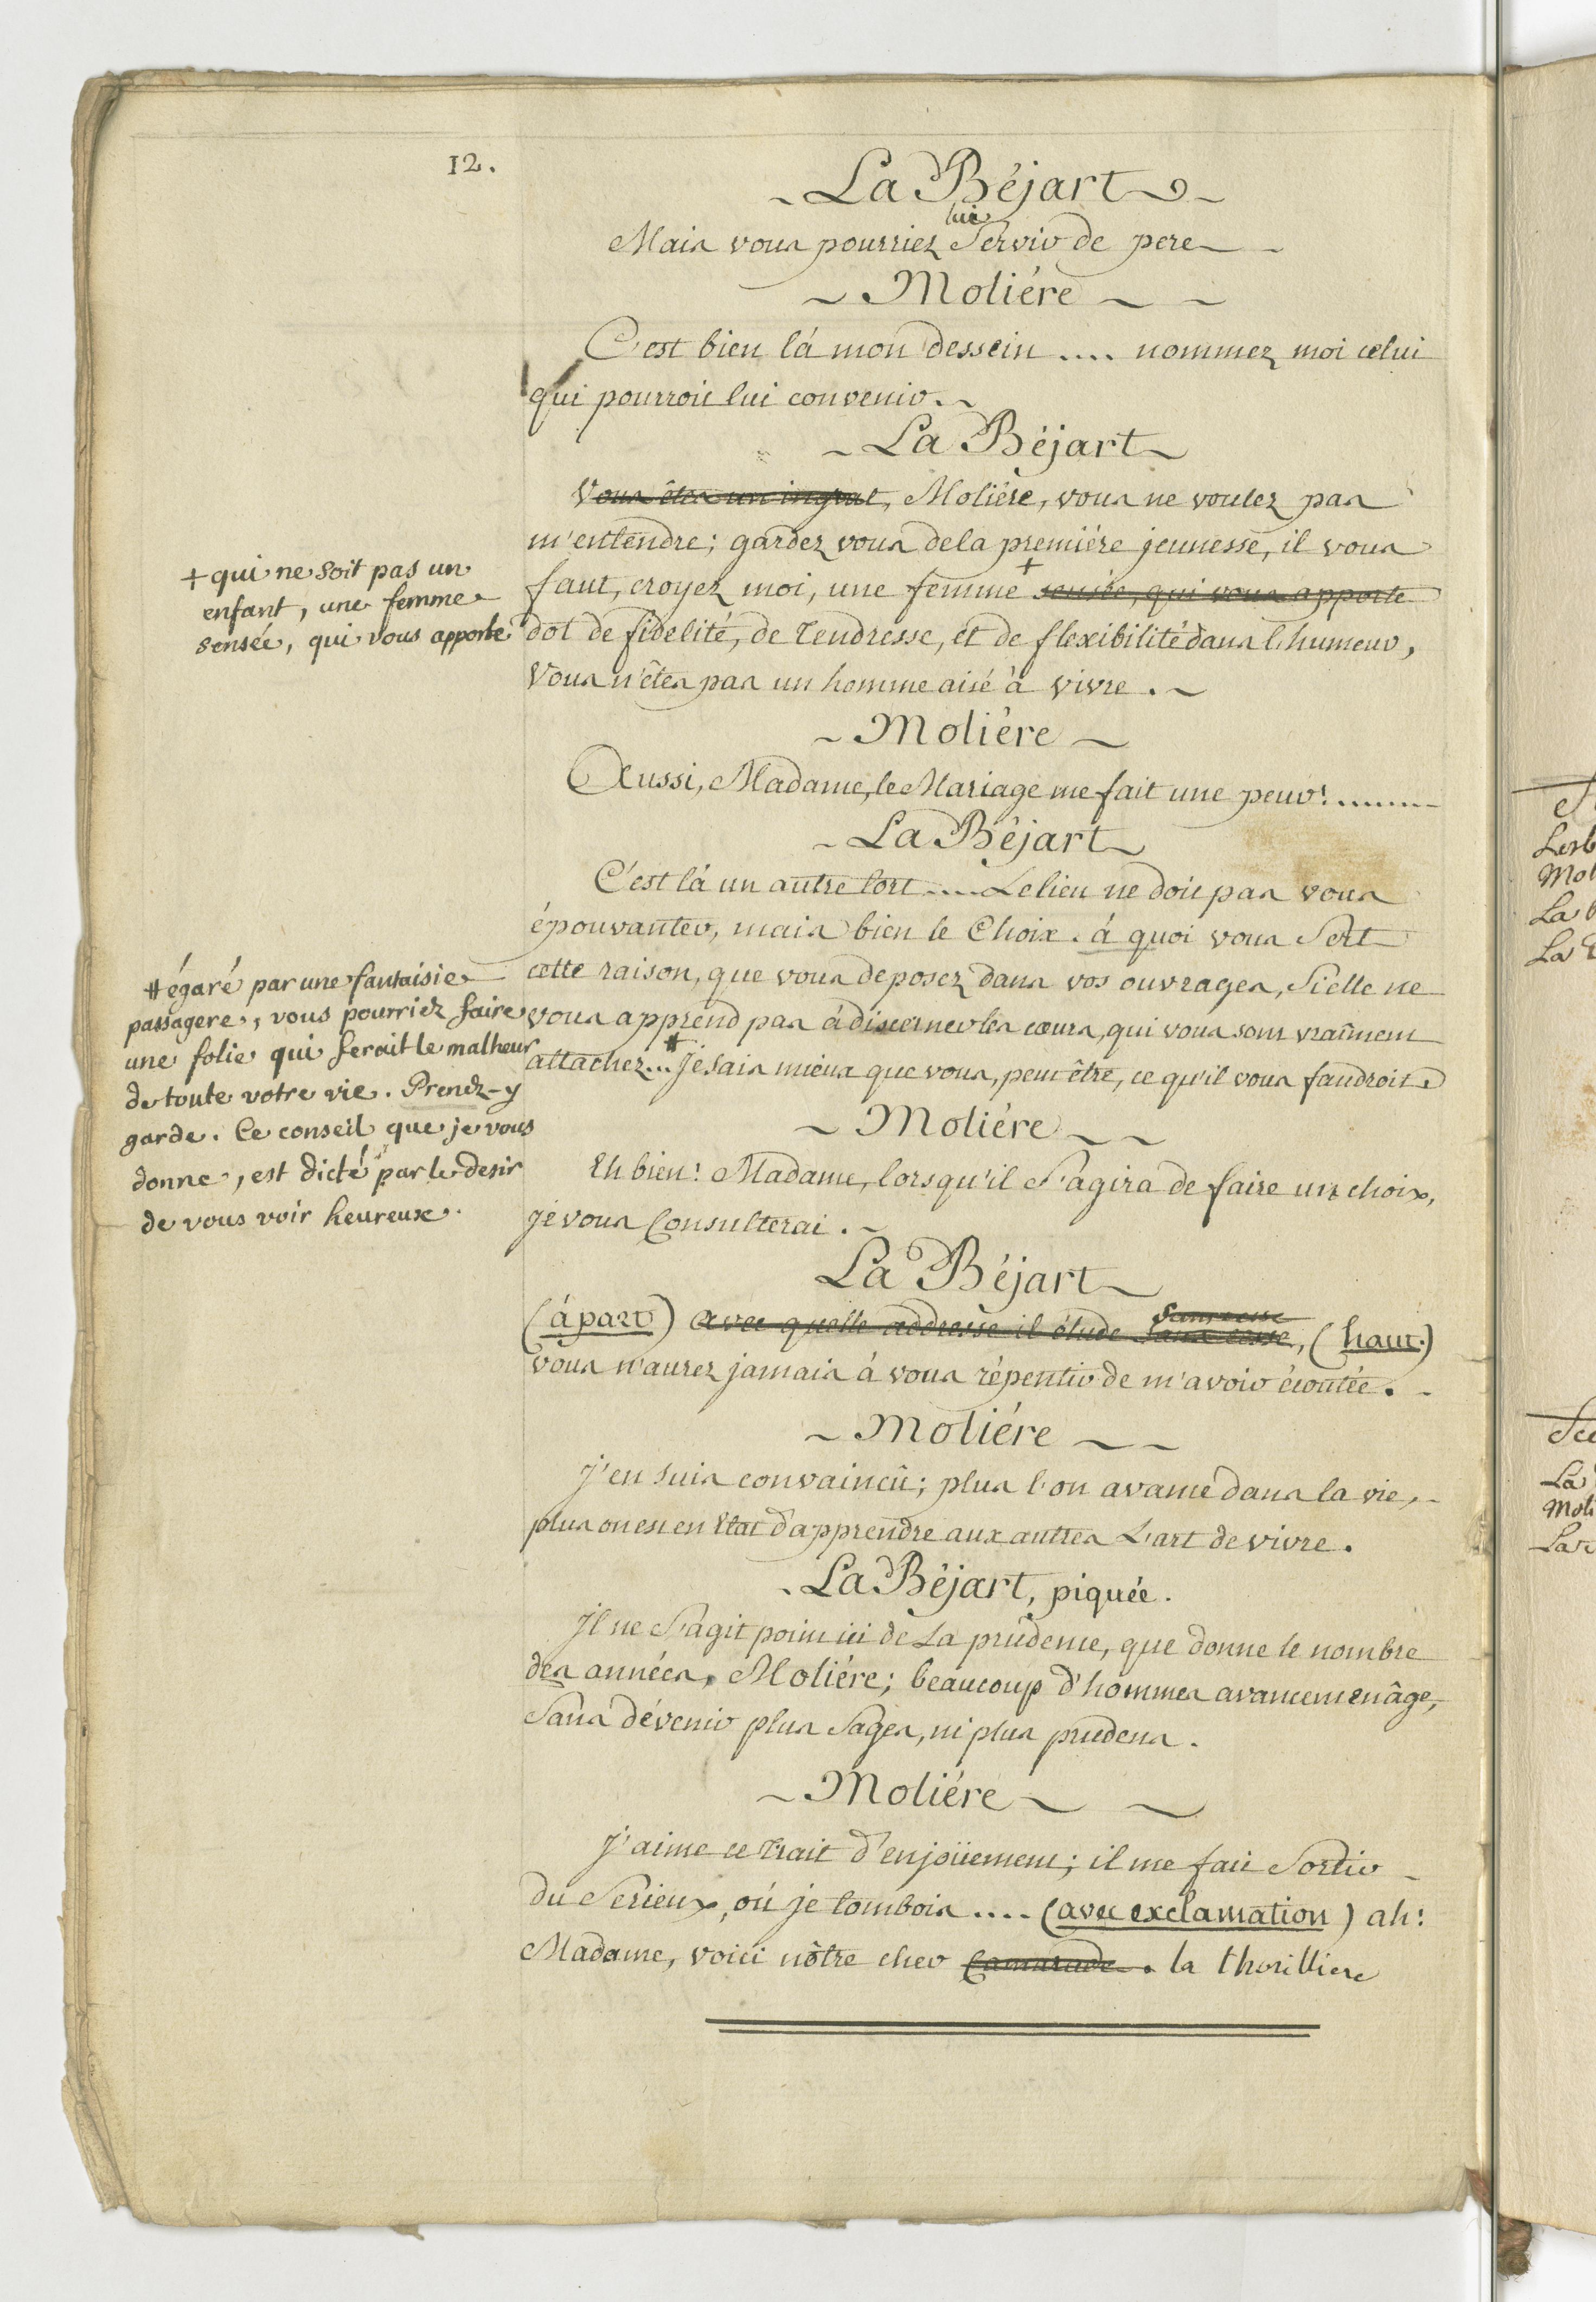 12.
La Béjart
lui
Mais vous pourriez Servir de pere
Moliére
C'est bien lá mon dessein .... nommez moi celui
qui pourroit lui convenir.
La Béjart
Vous êtes un ingrat, Moliére, vous ne voulez pas
m'entendre; gardez vous de la premiére jeunesse, il vous
faut, croyez moi, une femme + sensée, qui vous apporte
dot de fidelité, de tendresse, et de flexibilité dans l'humeur,
Vous n'êtes pas un homme aisé à vivre.
+ qui ne soit pas un
enfant, une femme
sensée, qui vous apporte
Moliére
Aussi, Madame, le Mariage me fait une peur! ........
La Béjart
C'est lá un autre tort .... Le lien ne doit pas vous
épouvanter, mais bien le Choix. á quoi vous Sert
cette raison, que vous deposez dans vos ouvrages, Si elle ne
vous apprend pas á discerner les cœurs, qui vous sont vraiment
attachez... # Je sais mieux que vous, peut être, ce qu'il vous faudroit
# égaré par une fantaisie
passagere, vous pourriez faire
une folie qui ferait le malheur
de toute votre vie. Prenez-y
garde. Ce conseil que je vous
donne, est dicté par le desir
de vous voir heureux.
Moliére
Eh bien! Madame, lorsqu'il S'agira de faire un choix,
je vous Consulterai.
La Béjart
sans cesse
(á part) avec quelle addresse il élude sans cesse, (haut.)
vous n'aurez jamais á vous répentir de m'avoir écoutée.
Moliére
J'en suis convaincû; plus l'on avance dans la vie,
plus on est en Etat d'apprendre aux autres L'art de vivre.
La Béjart, piquée.
Jl ne S'agit point ici de La prudence, que donne le nombre
des années, Moliére; beaucoup d'hommes avancent en âge,
Sans dévenir plus Sages, ni plus prudens.
Moliére
J'aime ce trait d'enjoüement; il me fait Sortir
du Serieux, où je tombois .... (avec exclamation) ah!
Madame, voici nôtre cher Camarade. la thorilliere